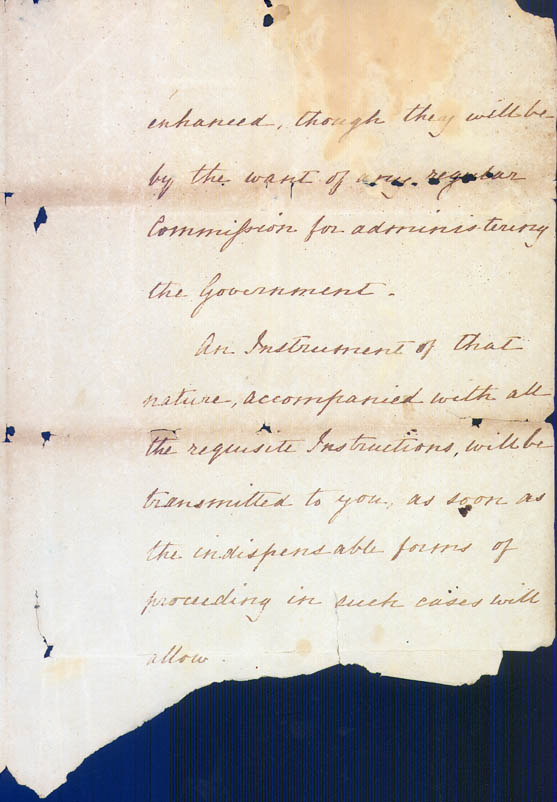 enhanced, though they will be
by the want of any regular
Commiſsion for administering
the Government.
An Instrument of that
nature, accompanied with all
the requisite Instructions, will be
transmitted to you, as soon as
the indispensable forms of
proceeding in such cases will
allow.